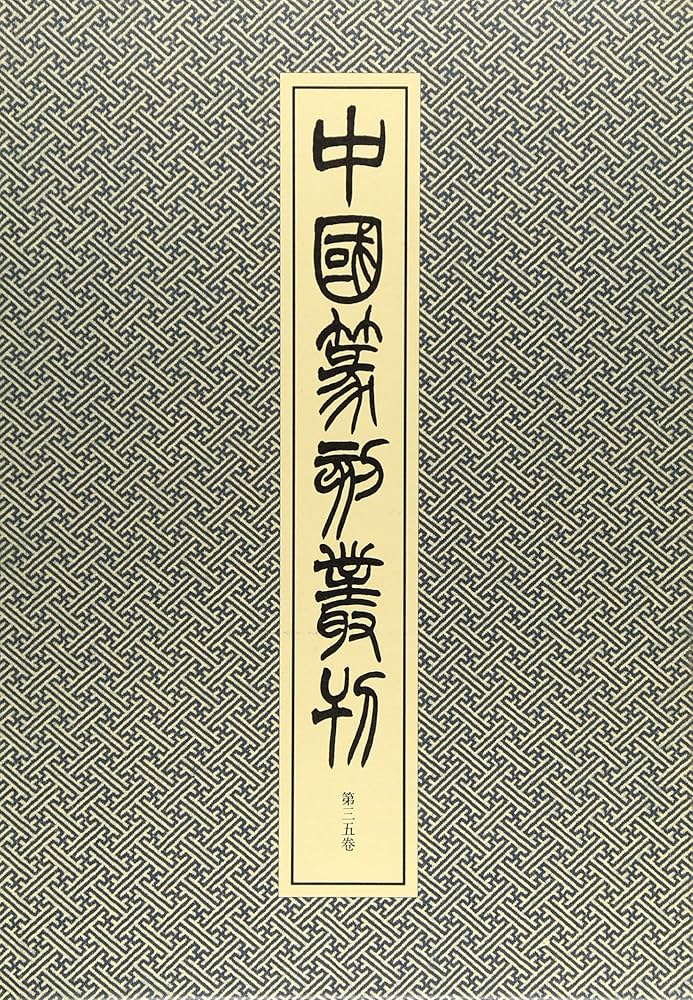 中國篆刻叢刊
第三五巻